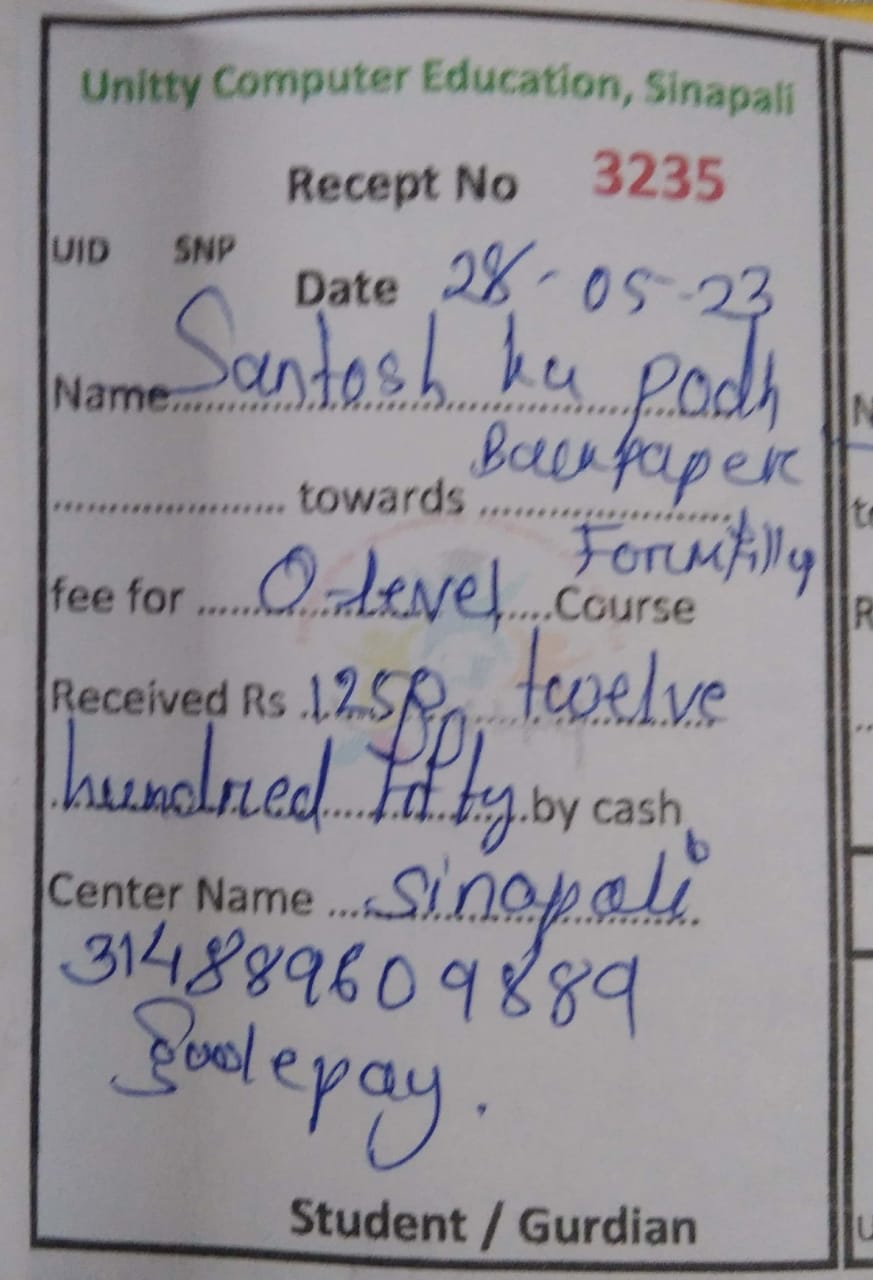 Unitty Computer Education, Sinapali
Recept No 3235
UID SNP
Date 28-05-23
Name Santosh ku Padh
Backpaper
.................... towards ....................
Formfilly
fee for ......O-level....Course
Received Rs .1250 twelve
hundred fifty.by cash
Center Name ....Sinapali
314889609889
Student / Gurdian